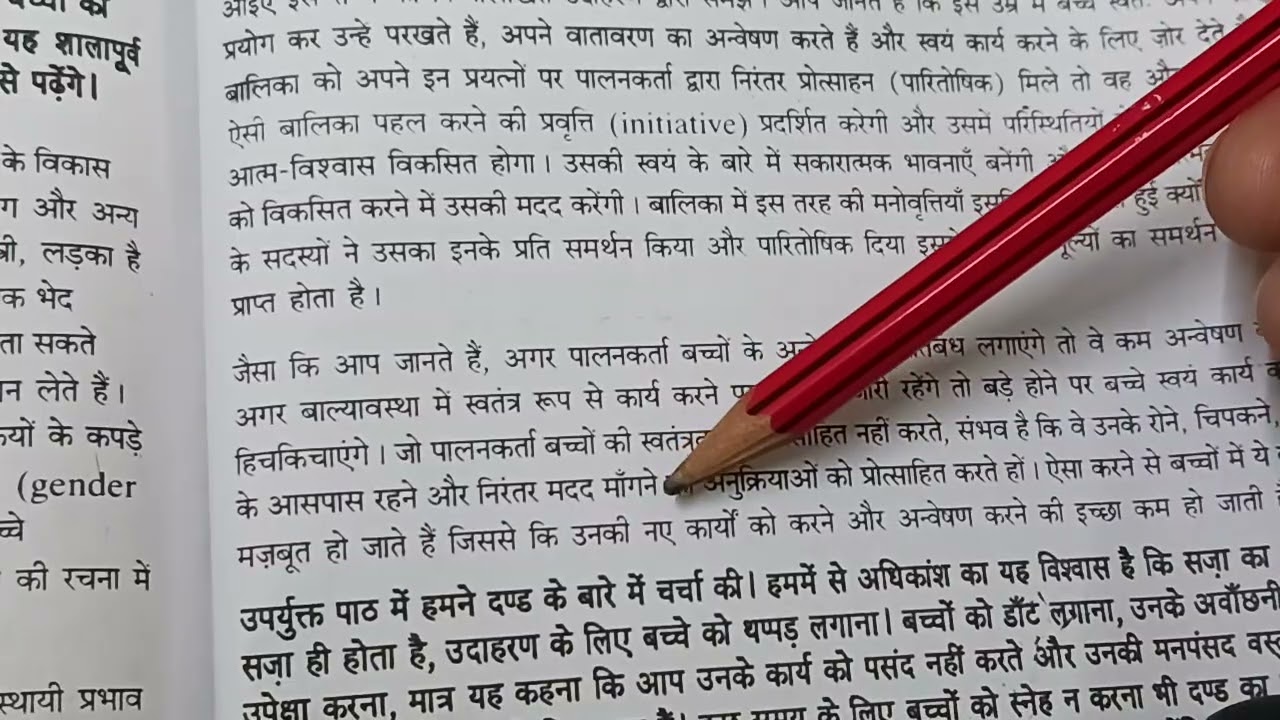 यह शालापूर्व
से पढ़ेंगे।
के विकास
ग और अन्य
त्री, लड़का है
क भेद
ता सकते
न लेते हैं।
यों के कपड़े
(gender
च्चे
की रचना में
स्थायी प्रभाव
प्रयोग कर उन्हें परखते हैं, अपने वातावरण का अन्वेषण करते हैं और स्वयं कार्य करने के लिए ज़ोर देते
बालिका को अपने इन प्रयत्नों पर पालनकर्ता द्वारा निरंतर प्रोत्साहन (पारितोषिक) मिले तो वह
ऐसी बालिका पहल करने की प्रवृत्ति (initiative) प्रदर्शित करेगी और उसमें परिस्थितियों
आत्म-विश्वास विकसित होगा। उसकी स्वयं के बारे में सकारात्मक भावनाएँ बनेंगी
को विकसित करने में उसकी मदद करेंगी। बालिका में इस तरह की मनोवृत्तियाँ हुई क्यों
के सदस्यों ने उसका इनके प्रति समर्थन किया और पारितोषिक दिया मूल्यों का समर्थन
प्राप्त होता है।
जैसा कि आप जानते हैं, अगर पालनकर्ता बच्चों के लगाएंगे तो वे कम अन्वेषण
अगर बाल्यावस्था में स्वतंत्र रूप से कार्य करने रहेंगे तो बड़े होने पर बच्चे स्वयं कार्य
हिचकिचाएंगे। जो पालनकर्ता बच्चों की नहीं करते, संभव है कि वे उनके रोने, चिपकने,
के आसपास रहने और निरंतर मदद माँगने अनुक्रियाओं को प्रोत्साहित करते हों। ऐसा करने से बच्चों में ये
मज़बूत हो जाते हैं जिससे कि उनकी नए कार्यों को करने और अन्वेषण करने की इच्छा कम हो जाती
उपर्युक्त पाठ में हमने दण्ड के बारे में चर्चा की। हममें से अधिकांश का यह विश्वास है कि सज़ा का
सज़ा ही होता है, उदाहरण के लिए बच्चे को थप्पड़ लगाना। बच्चों को डाँट लगाना, उनके अवाँछनी
उपेक्षा करना, मात्र यह कहना कि आप उनके कार्य को पसंद नहीं करते और उनकी मनपसंद वस्
के लिए बच्चों को स्नेह न करना भी दण्ड का